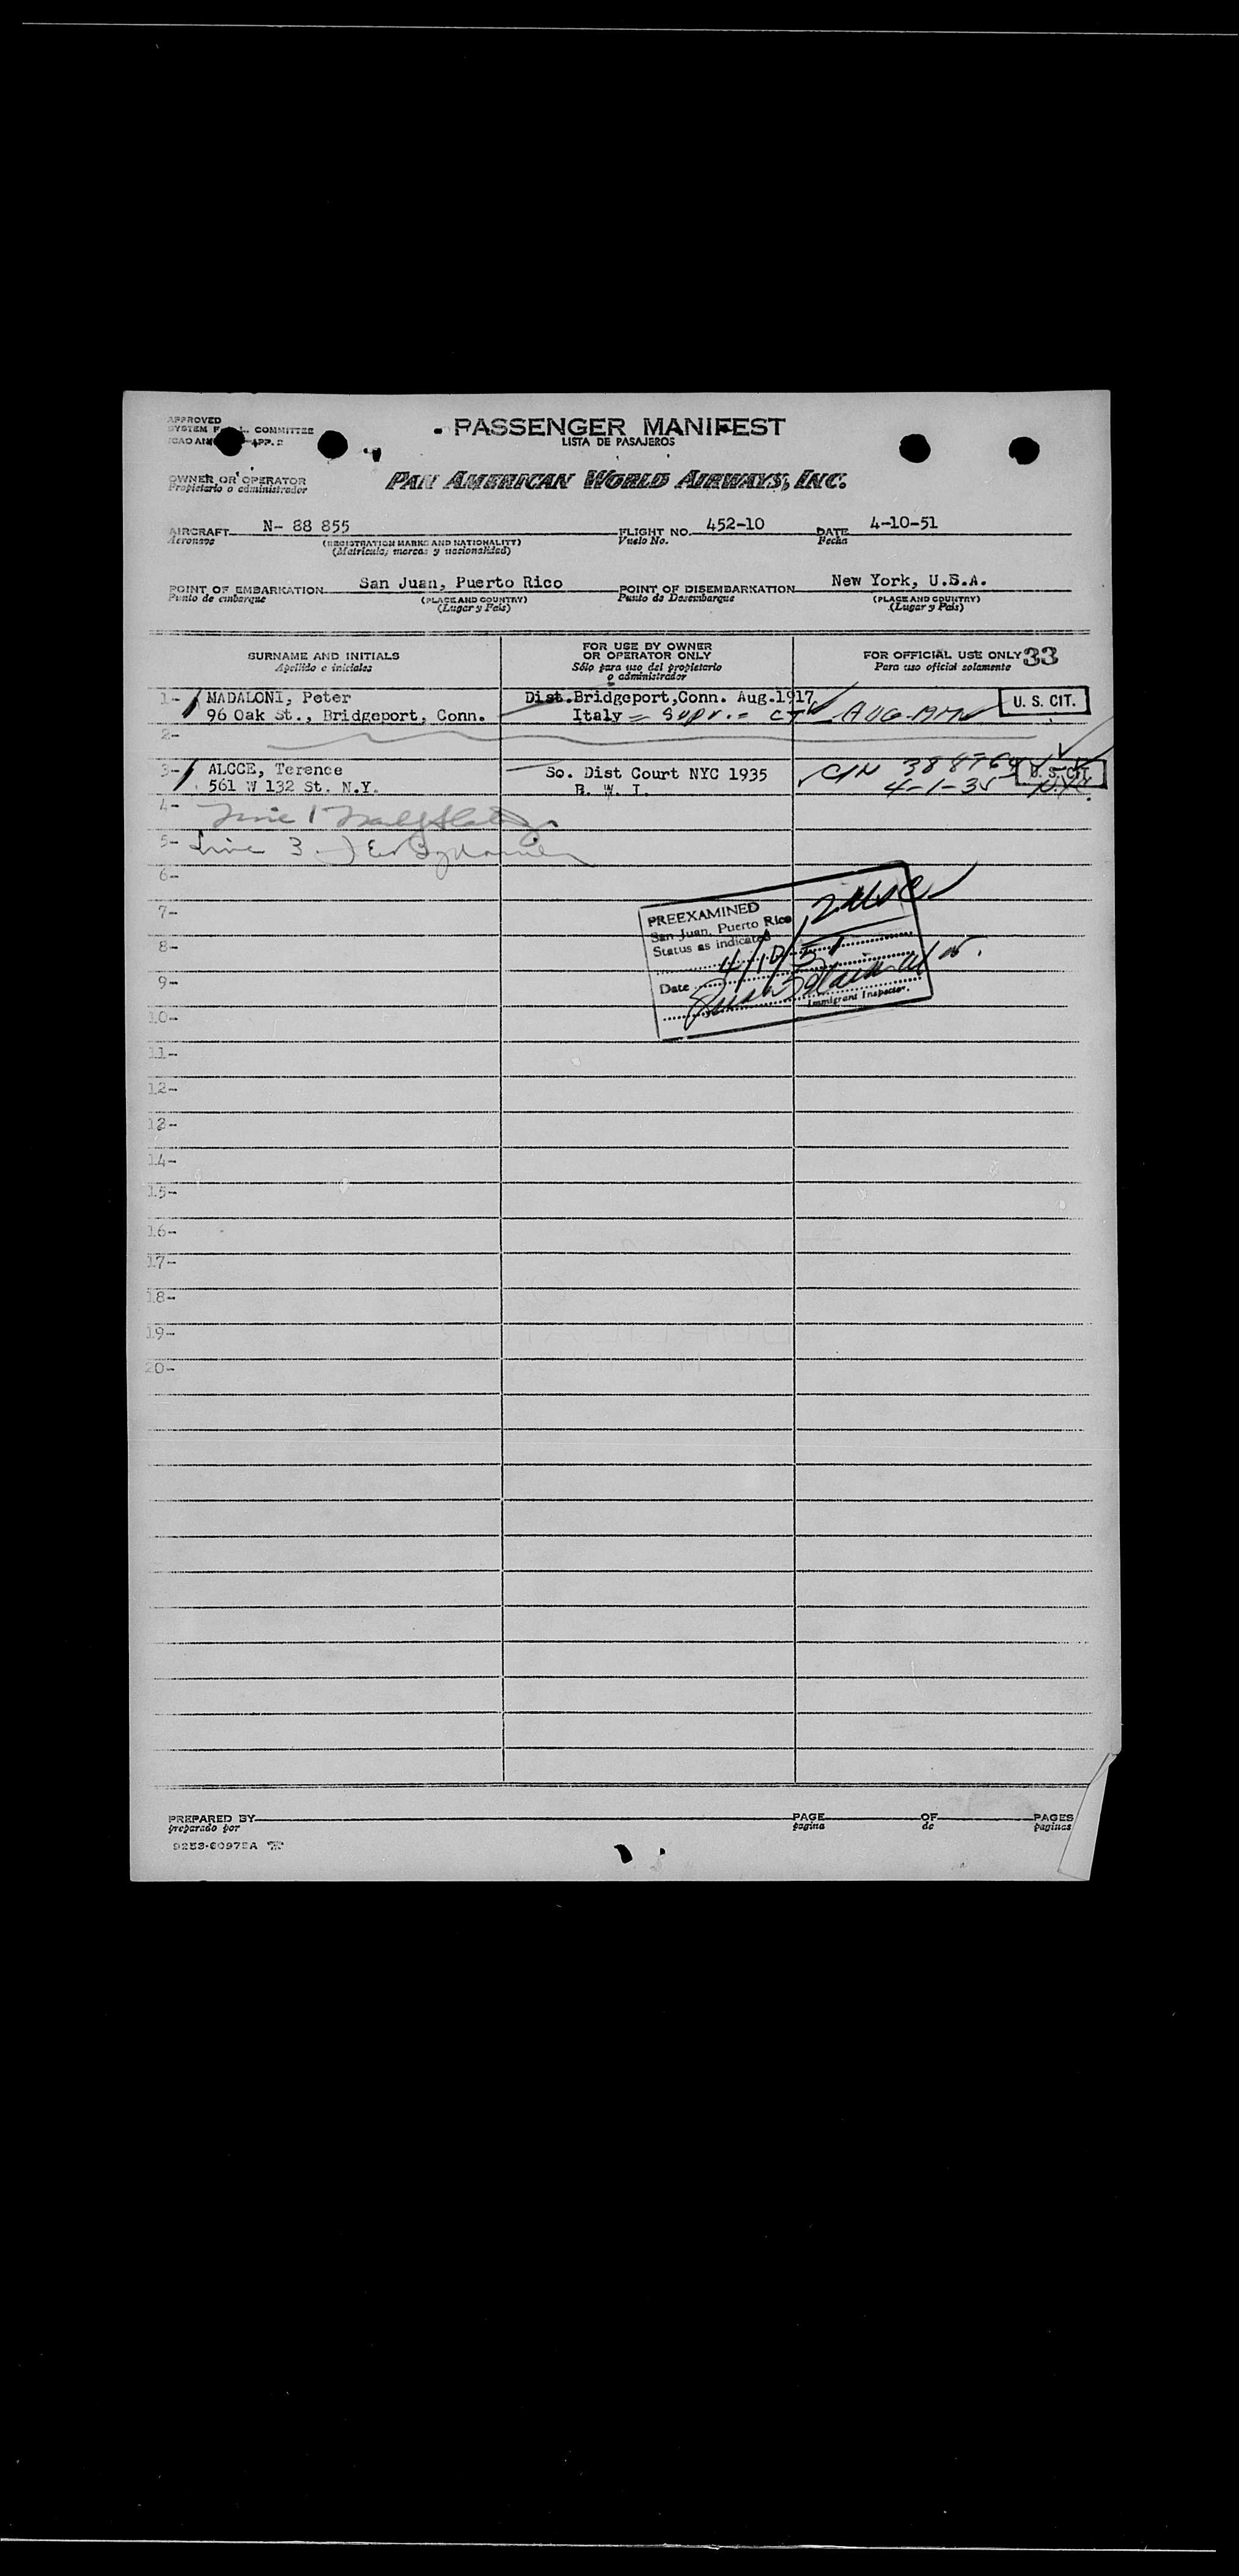 APPROVED
SYSTEM COMMITTEE
ICAO APP. 2
PASSENGER MANIFEST
LISTA DE PASAJEROS
OWNER OR OPERATOR
Propietario o administrador
PAN AMERICAN WORLD AIRWAYS, INC.
AIRCRAFT N- 88 855 FLIGHT NO. 452-10 DATE 4-10-51
Aeronave (REGISTRATION MARKS AND NATIONALITY) Vuelo No. Fecha
(Matricula, marcas y nacionalidad)
POINT OF EMBARKATION San Juan, Puerto Rico POINT OF DISEMBARKATION New York, U.S.A.
Punto de embarque (PLACE AND COUNTRY) Punto de Desembarque (PLACE AND COUNTRY)
(Lugar y Pais) (Lugar y Pais)
SURNAME AND INITIALS
Apellido e iniciales
FOR USE BY OWNER
OR OPERATOR ONLY
Sólo para uso del propietario
o administrador
FOR OFFICIAL USE ONLY 33
Para uso oficial solamente
1- MADALONI, Peter Dist.Bridgeport,Conn. Aug.1917 U. S. CIT.
96 Oak St., Bridgeport, Conn. Italy = Supr. = CT AUG-1917
2-
3- ALCCE, Terence So. Dist Court NYC 1935 C/N U. S. CIT.
561 W 132 St. N.Y. B. W. I. 4-1-35 N.Y.
4- Line 1
5- Line 3
6-
7-
8-
9-
10-
PREEXAMINED
San Juan, Puerto Rico
Status as indicated
4/10/51
Date
Immigrant Inspector.
11-
12-
13-
14-
15-
16-
17-
18-
19-
20-
PREPARED BY PAGE OF PAGES
preparado por pagina de paginas
9253-60975A